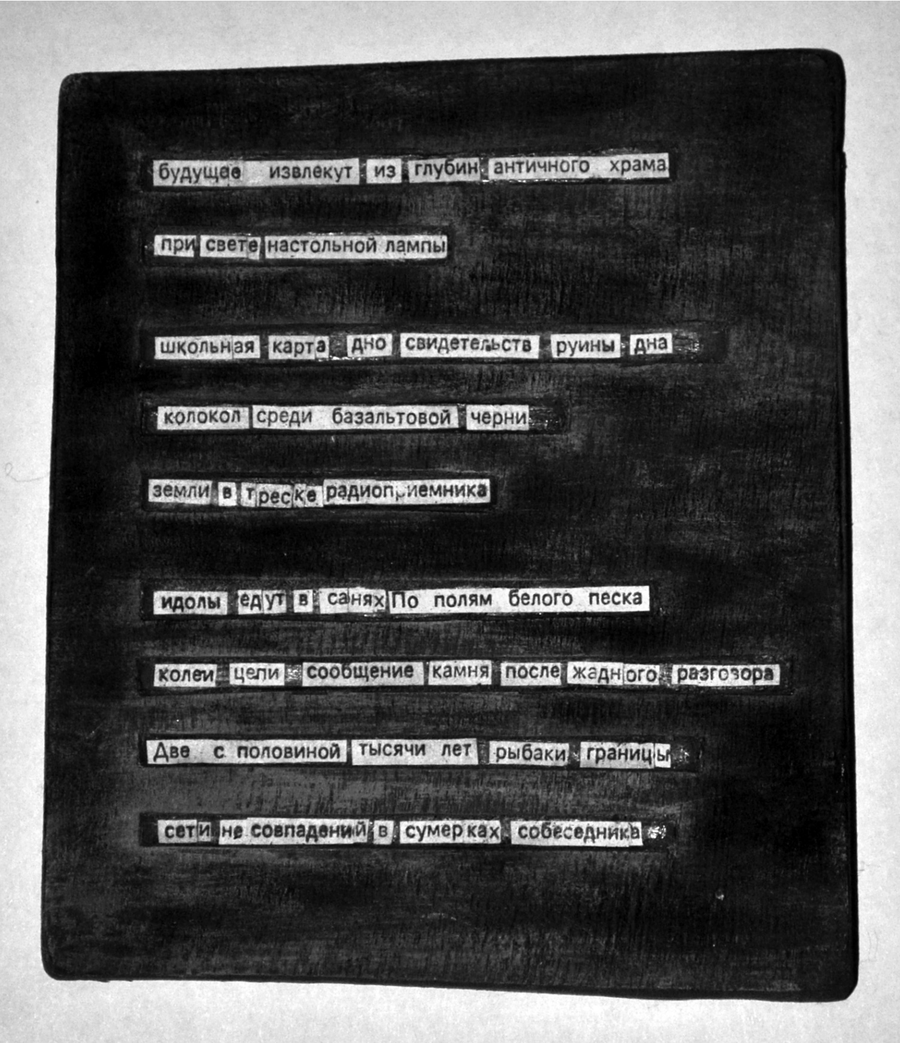 будущее извлекут из глубин античного храма
при свете настольной лампы
школьная карта дно свидетельств руины дна
колокол среди базальтовой черни
земли в треске радиоприемника
идолы едут в санях По полям белого песка
колеи цели сообщение камня после жадного разговора
Две с половиной тысячи лет рыбаки границы
сети не совпадений в сумерках собеседника